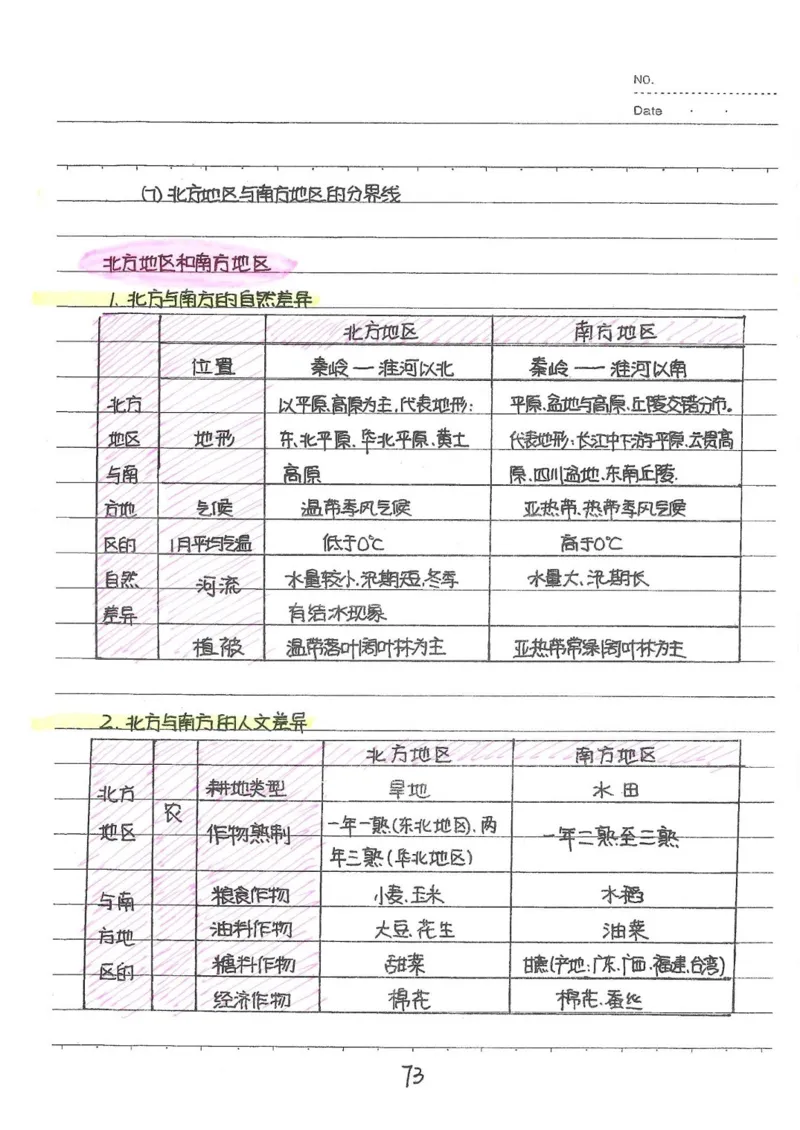 NO.
Date
(7) 北方地区与南方地区的分界线
北方地区和南方地区
1. 北方与南方的自然差异
北方地区 南方地区
位置 秦岭—淮河以北 秦岭—淮河以南
北方 以平原、高原为主,代表地形: 平原、盆地与高原、丘陵交错分布。
地区 地形 东北平原、华北平原、黄土 代表地形:长江中下游平原、云贵高
与南 高原 原、四川盆地、东南丘陵.
方地 气候 温带季风气候 亚热带、热带季风气候
区的 1月平均气温 低于0℃ 高于0℃
自然 河流 水量较小,汛期短,冬季 水量大、汛期长
差异 有结冰现象
植被 温带落叶阔叶林为主 亚热带常绿阔叶林为主
2. 北方与南方的人文差异
北方地区 南方地区
北方 农 耕地类型 旱地 水田
地区 作物熟制 一年一熟(东北地区)、两 一年二熟至三熟
年三熟(华北地区)
与南 粮食作物 小麦、玉米 水稻
方地 油料作物 大豆、花生 油菜
区的 糖料作物 甜菜 甘蔗(产地:广东、广西、福建、台湾)
经济作物 棉花 棉花、蚕丝
73